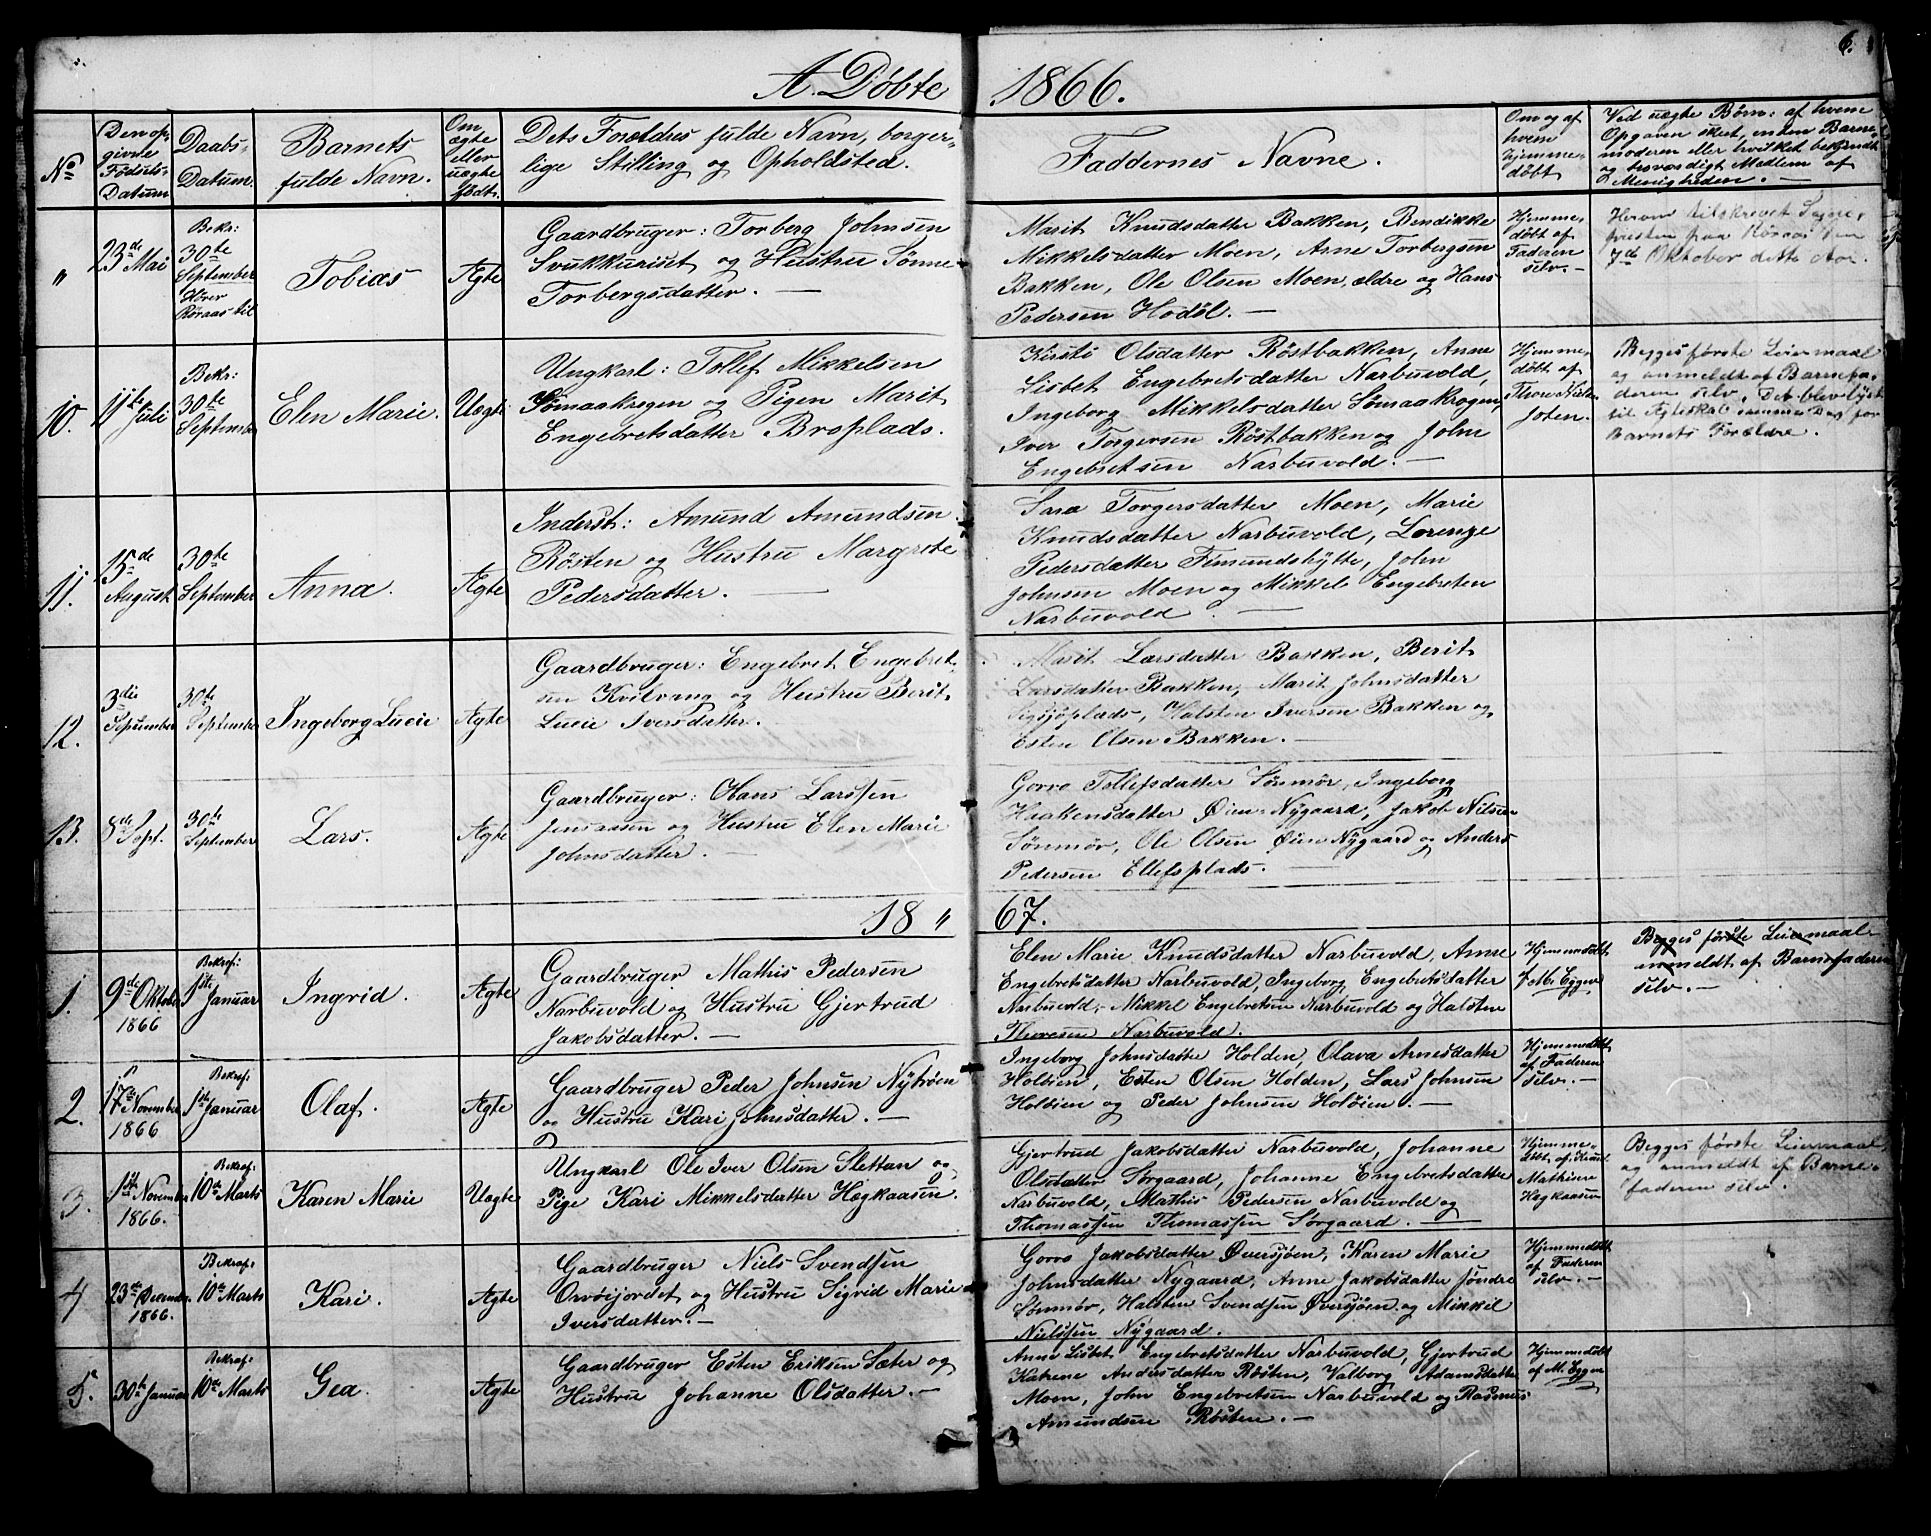 6.
A. Døbte 1866.
No
Den op-
givne
Fødsels-
Datum
Daabs-
Datum.
Barnets
fulde Navn.
Om
ægte
eller
uægte
født.
Det's Forældres fulde Navn, borger-
lige Stilling og Opholdsted.
Faddernes Navne.
Om og af
hvem
hjemme-
døbt
Ved uægte Børn: af hvem
Opgaven skeet, enten Barne-
moderen eller hvilket bekjendt
og troværdigt Medlem af
Menigheden. —
"
23de Mai
Bekr:
30te
September
Hører
Røraas til
Tobias
Ægte
Gaardbruger: Torberg Johnsen
Svukkuriset og Hustru Sønne
Torbergsdatter. —
Marit Knudsdatter Bakken, Bendikke
Mikkelsdatter Moen, Arne Torbergsen
Bakken, Ole Olsen Moen, ældre og Hans
Pedersen Hodøl. —
Hjemme-
døbt af
Faderen
selv. —
Herom tilskrevet Sogne-
præsten paa Røraas den
7de Oktober dette Aar.
10.
11te
Juli
Bekr:
30te
September
Elen Marie.
Uægte
Ungkarl: Tollef Mikkelsen
Sømaakrogen og Pigen Marit
Engebretsdatter Broplads.
Kirsti Olsdatter Røstbakken, Anne
Lisbet Engebretsdatter Narbuvold,
Ingeborg Mikkelsdatter Sømaakrogen,
Iver Torgersen Røstbakken og John
Engebretsen Narbuvold. —
Hjemme-
døbt af
Thore Nilsen
Joten.
Begges første Leiermaal
og anmeldt af Barnefa-
deren selv. Det blev lyst
til Ægteskab samme Dag for
Barnets Forældre.
11.
15de
August
30te
September
Anna.
Ægte
Inderst: Amund Amundsen
Røsten og Hustru Margrete
Pedersdatter. —
Sara Torgersdatter Moen, Marie
Knudsdatter Narbuvold, Lorenze
Pedersdatter Femundshytte, John
Johnsen Moen og Mikkel Engebreten
Narbuvold. —
12.
3die
September
30te
September
Ingeborg Lucie
Ægte
Gaardbruger: Engebret Engebret-
sen Kvilvang og Hustru Berit
Lucie Iversdatter.
Marit Larsdatter Bakken, Berit
Larsdatter Bakken, Marit Johnsdatter
Sigsjøplads, Halsten Iversen Bakken og
Esten Olsen Bakken. —
13.
8de Sept.
30te
September
Lars.
Ægte
Gaardbruger: Hans Larssen
Jensaasen og Hustru Elen Marie
Johnsdatter. —
Gorro Tollefsdatter Sønmør, Ingeborg
Haakensdatter Øien Nygaard, Jakob Nilsen
Sønmør, Ole Olsen Øien Nygaard og Anders
Pedersen Ellefsplads. —
18 " 67.
1.
9de Oktober
1866
Bekræf:
1ste
Januar
Ingrid.
Ægte
Gaardbruger Mathis Pedersen
Narbuvold og Hustru Gjertrud
Jakobsdatter. —
Elen Marie Knudsdatter Narbuvold, Anne
Engebretsdatter Narbuvold, Ingeborg Engebretsdatter
Narbuvold, Mikkel Engebretsen Narbuvold og Halsten
Thoresen Narbuvold.
Hjemmedøbt
Eggen
Begges første Leiermaal
anmeldt af Barnefaderen
selv. —
2.
17de November
1866
Bekræf:
1ste Januar
Olaf.
Ægte
Gaardbruger Peder Johnsen Nytrøen
og Hustru Kari Johnsdatter. —
Ingeborg Johnsdatter Holden, Olava Arnesdatter
Holøien, Esten Olsen Holden, Lars Johnsen
Holøien og Peder Johnsen Holøien. —
Hjemmedøbt
af Faderen
selv. —
3.
1ste November
1866.
Bekræf:
10de Marts
Karen Marie
Uægte
Ungkarl Ole Iver Olsen Slettan og
Pige Kari Mikkelsdatter Hegkaasen.
Gjertrud Jakobsdatter Narbuvold, Johanne
Olsdatter Sørgaard, Johanne Engebretsdatter
Narbuvold, Mathis Pedersen Narbuvold og
Thomassen Thomassen Sørgaard. —
Hjemme-
døbt af
Mathisen
Hegkaasen
Begges første Leiermaal
og anmeldt af Barne-
faderen selv.
4
23de December
1866.
Bekræf:
10de Marts
Kari.
Ægte
Gaardbruger Niels Svendsen
Orvøijordet og Hustru Sigrid Marie
Iversdatter. —
Gorro Jakobsdatter Øversjøen, Karen Marie
Johnsdatter Nygaard, Anne Jakobsdatter Søndre
Sønmør, Halsten Svendsen Øversjøen og Mikkel
Nielssen Nygaard.
Hjemmedøbt
af Faderen
selv. —
5.
30te Januar
Bekræf:
10de Marts
Gea.
Ægte
Gaardbruger Esten Eriksen Sæter og
Hustru Johanne Olsdatter. —
Anne Lisbet Engebretsdatter Narbuvold, Gjertrud
Katrine Andersdatter Røsten, Valborg Adamsdatter
Moen, John Engebretsen Narbuvold og Rasmus
Amundsen Røsten. —
Hjemmedøbt
af M. Eggen